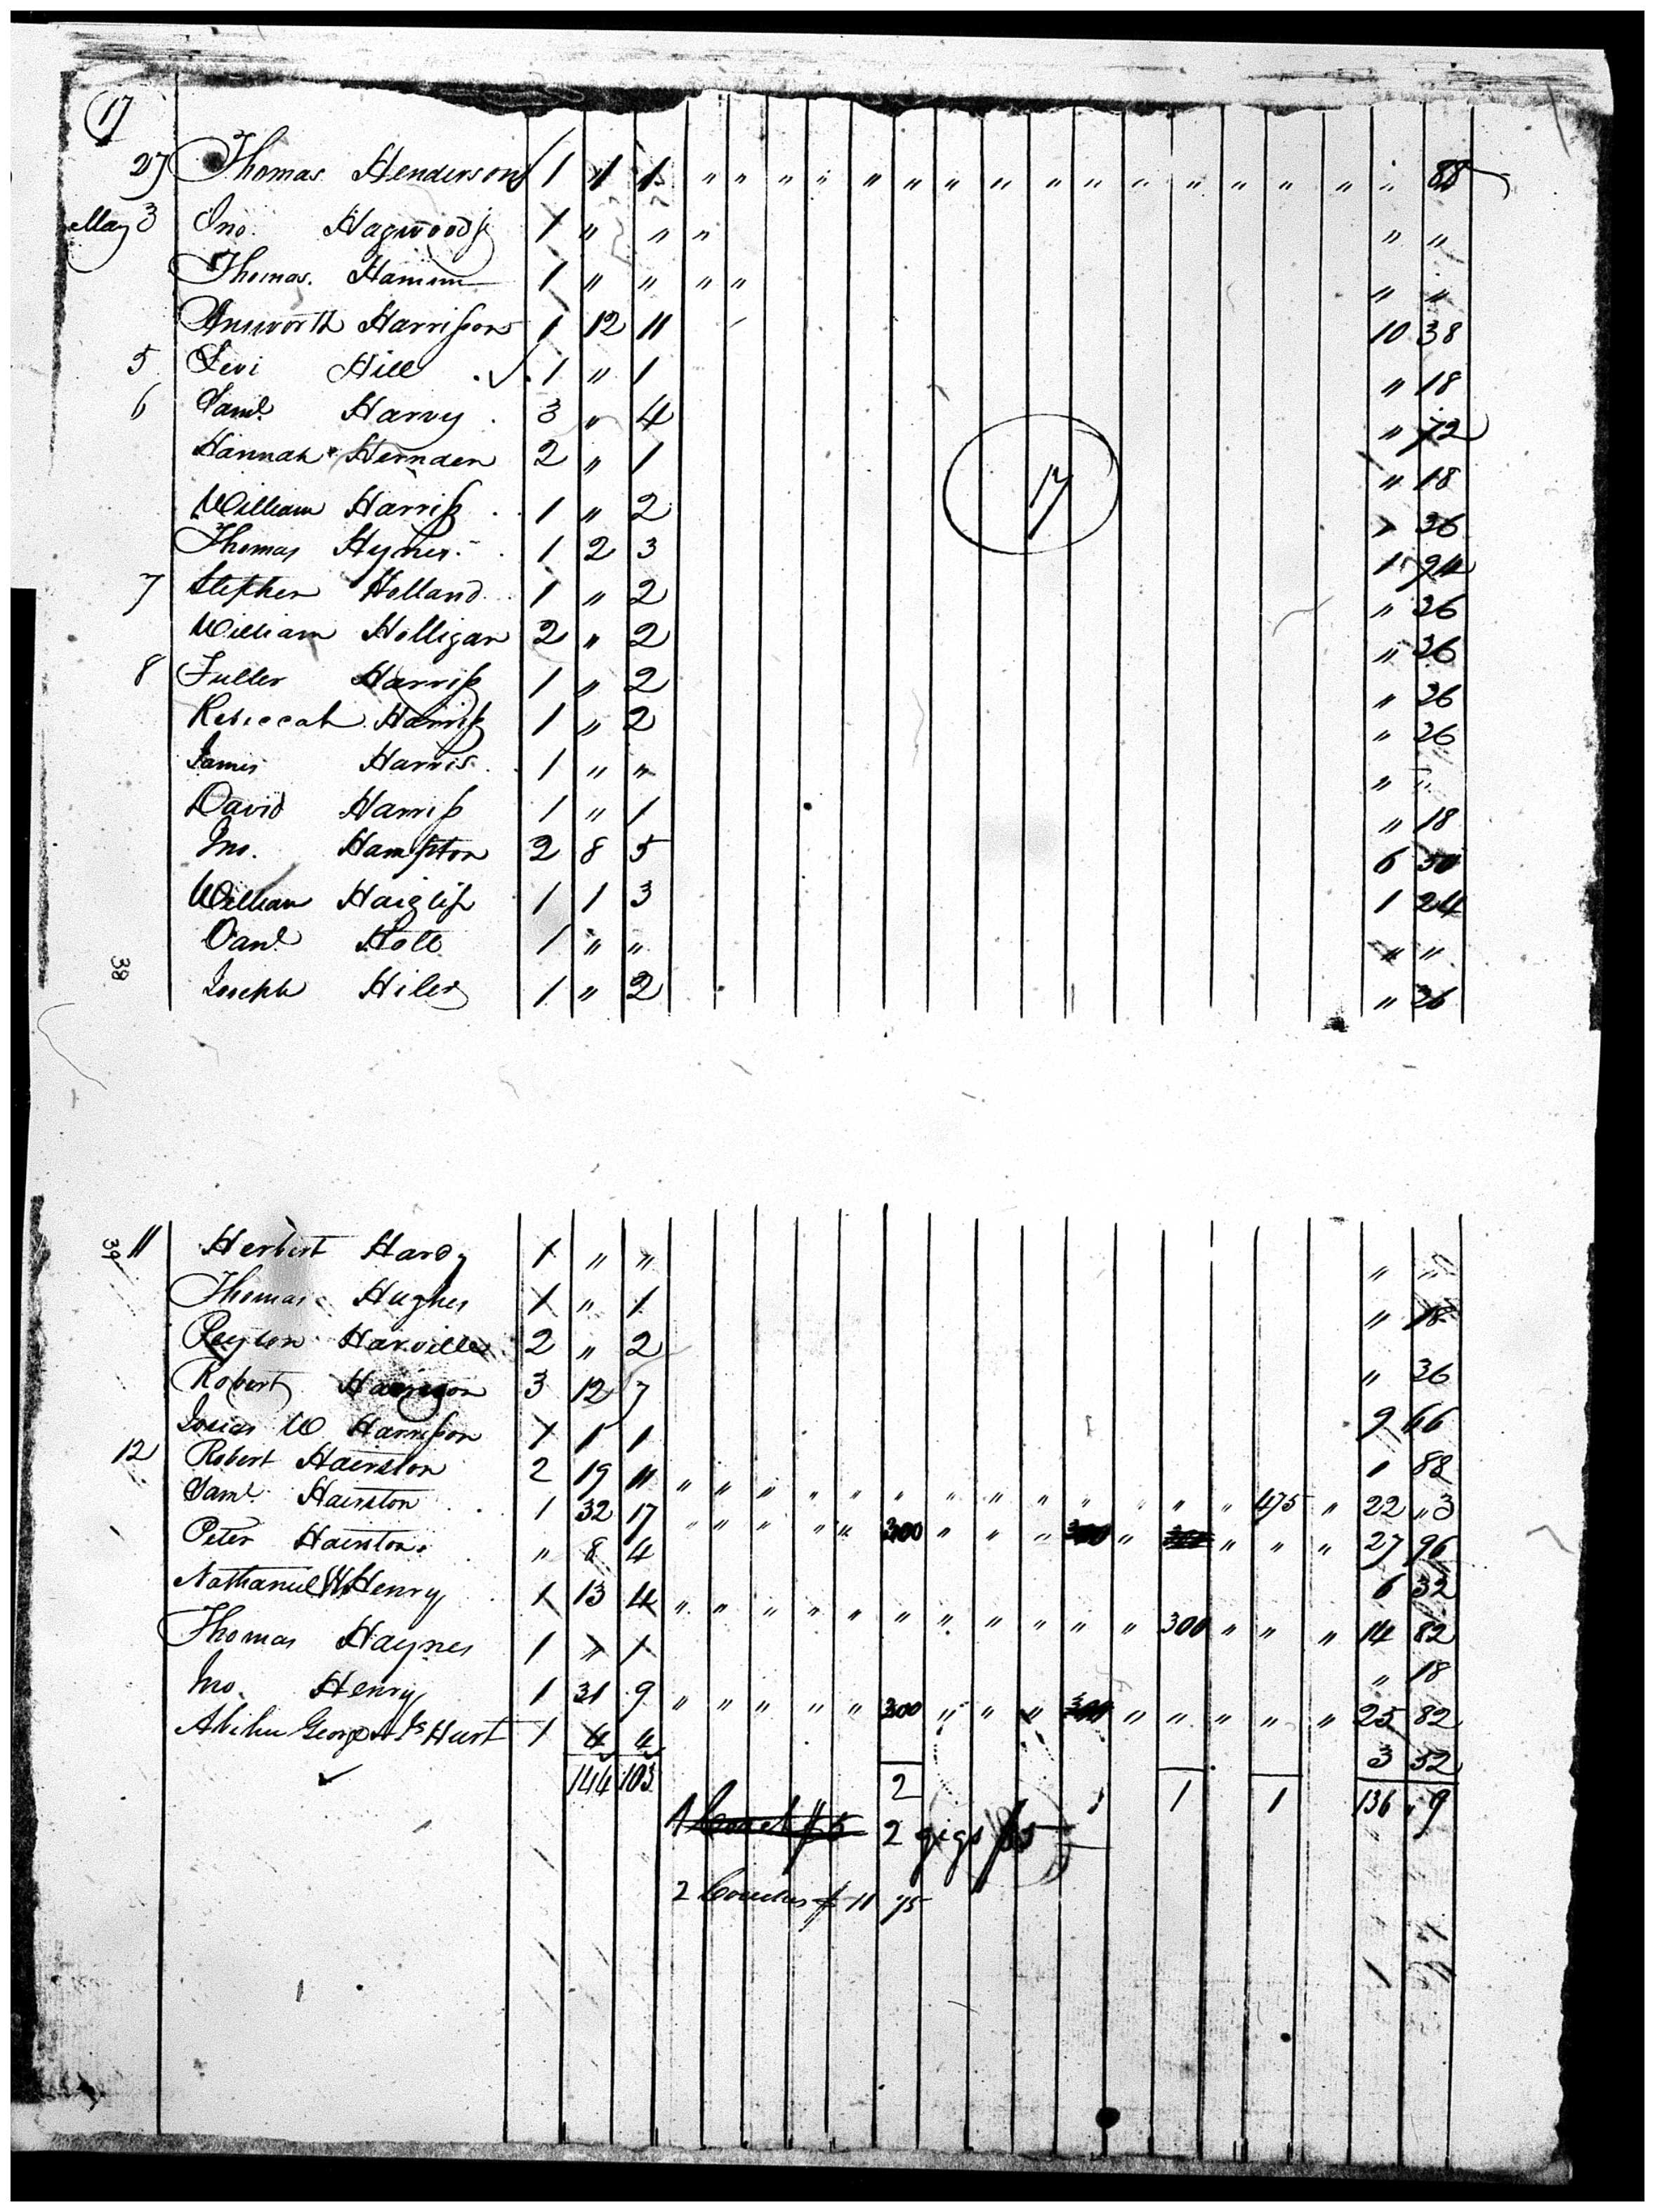 17
27 Thomas Henderson 1 1 1 " " " " " " " " " " " " " " " " " 88
May 3 Jno. Hagwood jr 1 " " " " "
Thomas. Hamm 1 " " " " " "
Answorth Harrisson 1 12 11 10 38
5 Levi Hill 1 " 1 " 18
6 Saml. Harvy 3 " 4 " 72
Hannah Hernden 2 " 1 " 18
17
William Harriss 1 " 2 " 36
Thomas Hynes 1 2 3 1 94
7 Stephen Holland 1 " 2 " 36
William Holligan 2 " 2 " 36
8 Fuller Harriss 1 " 2 " 36
Rebeccah Harriss 1 " 2 " 36
James Harris 1 " " " "
David Harriss 1 " 1 " 18
Jno. Hampton 2 8 5 6 50
William 1 1 3 1 24
Danl. Holt 1 " " " "
38
Joseph Hiler 1 " 2 " 36
39
11 Herbert Hardy 1 " " " "
Thomas Hughes 1 " 1 " 18
Peyton Harville 2 " 2 " 36
Robert Harrison 3 12 7 9 66
Josias W Harrisson 1 1 1 1 88
12 Robert Hairston 2 19 11 " " " " " " " " " " " " " 475 " 22 " 3
Saml. Hairston 1 32 17 " " " " " 300 " " " 300 " " " " 27 96
Peter Hairston " 8 4 6 32
Nathaniel W Henry 1 13 4 " " " " " " " " " " " 300 " " " 14 82
Thomas Haynes 1 " 1 " 18
Jno. Henry 1 31 9 " " " " " 300 " " " 300 " " " " " 25 82
Abihu George Hurt 1 4 4 3 52
144 103 2 1 1 136 " 9
1 Coach $5 2 gigs $5
2 Coaches $ 11 75